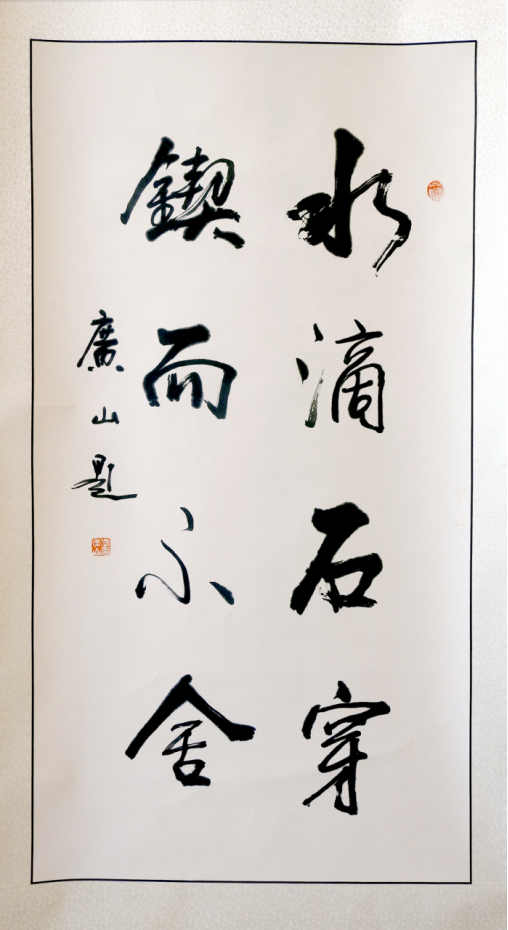 水滴石穿
鍥而不舍
廣山題